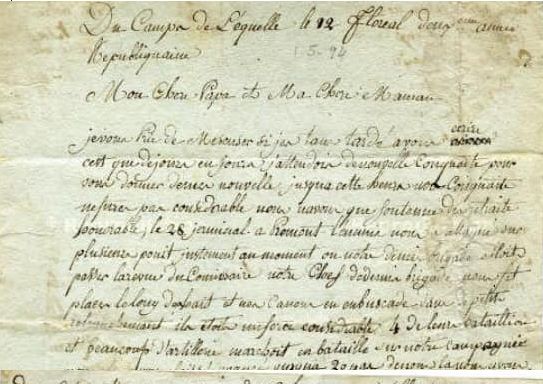 Du Camps de L'équelle le 12 floreal deux eme année
Republiquaine 1 5 94
Mon Cher Papa et Ma Cher Maman
je vous Prie de Mescuser si jes tans tardé a vous ecrire
cest que de jours en jours j'attendois de nouvelle Conquaite pour
vous donner de mes nouvelle, jusqua cette heure nos Conquaite
ne sures pas considerable nous navons que soutenue des retraite
honorable, le 28 jerminal a Premont l'ennemie nous a attaqué sur
plusieurs point justement au moment ou notre demie brigade alloit
passer la revue du Comissaire notre Chef de demie brigade nous fit
placer le long et nos Canons en enbuscade dans de petits
retranchement ils étois en force considerable, 4 de leurs bataillion
et beaucoup d'artillerie marchoit en bataille sur notre campagnie